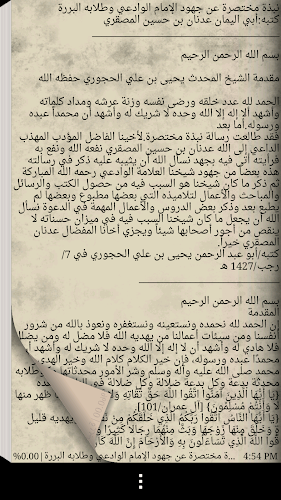 نبذة مختصرة عن جهود الإمام الوادعي وطلابه البررة
كتبه:أبي اليمان عدنان بن حسين المصقري
بسم الله الرحمن الرحيم
مقدمة الشيخ المحدث يحيى بن علي الحجوري حفظه الله
الحمد لله عدد خلقه ورضى نفسه وزنة عرشه ومداد كلماته
وأشهد ألا إله إلا الله وحده لا شريك له وأشهد أن محمداً عبده
ورسوله,أما بعد
فقد طالعت رسالة نبذة مختصرة,لأخينا الفاضل المؤدب المهذب
الداعي إلى الله عدنان بن حسين المصقري نفعه الله ونفع به
فرأيته أتى فيه بجهد نسأل الله أن يثيبه عليه ذكر في رسالته
هذه بعضاً من جهود شيخنا العلامة الوادعي رحمه الله المباركة
ثم ذكر ما كان شيخنا هو السبب فيه من حصول الكتب والرسائل
والمباحث والأعمال لتلاميذه التي بعضها مطبوع وبعضها لم
يطبع بعد وذكر بعض الدروس والأعمال المهمة في الدعوة نسأل
الله أن يجعل ما كان شيخنا السبب فيه في ميزان حسناته لا
ينقص من أجور أصحابها شيئاً ويجزي أخانا المفضال عدنان
المصقري خيراً.
كتبه/أبو عبد الرحمن يحيى بن علي الحجوري في 7/
رجب/1427 هـ
بسم الله الرحمن الرحيم
المقدمة
إن الحمد لله نحمده ونستعينه ونستغفره ونعوذ بالله من شرور
أنفسنا ومن سيئات أعمالنا من يهديه الله فلا مضل له ومن يضلل
فلا هادي له وأشهد أن لا إله إلا الله وحده لا شريك له وأشهد أن
محمدًا عبده ورسوله، فإن خير الكلام كلام الله وخير الهدي
محمد صلى الله عليه وآله وسلم وشر الأمور محدثاتها
محدثة بدعة وكل بدعة ضلالة وكل ضلالة في
{يَا أَيُّهَا الَّذِينَ آمَنُوا اتَّقُوا اللَّهَ حَقَّ تُقَاتِهِ
وَأَنْتُمْ مُسْلِمُونَ} [آل عمران/101].
{يَا أَيُّهَا النَّاسُ اتَّقُوا رَبَّكُمُ الَّذِي خَلَقَكُمْ مِنْ
وَخَلَقَ مِنْهَا زَوْجَهَا وَبَثَّ مِنْهُمَا رِجَالًا كَثِيرًا
اللَّهَ الَّذِي تَسَاءَلُونَ بِهِ وَالْأَرْحَامَ إِنَّ اللَّهَ
%0.00 | نبذة مختصرة عن جهود الإمام الوادعي وطلابه البررة... 4:54 PM